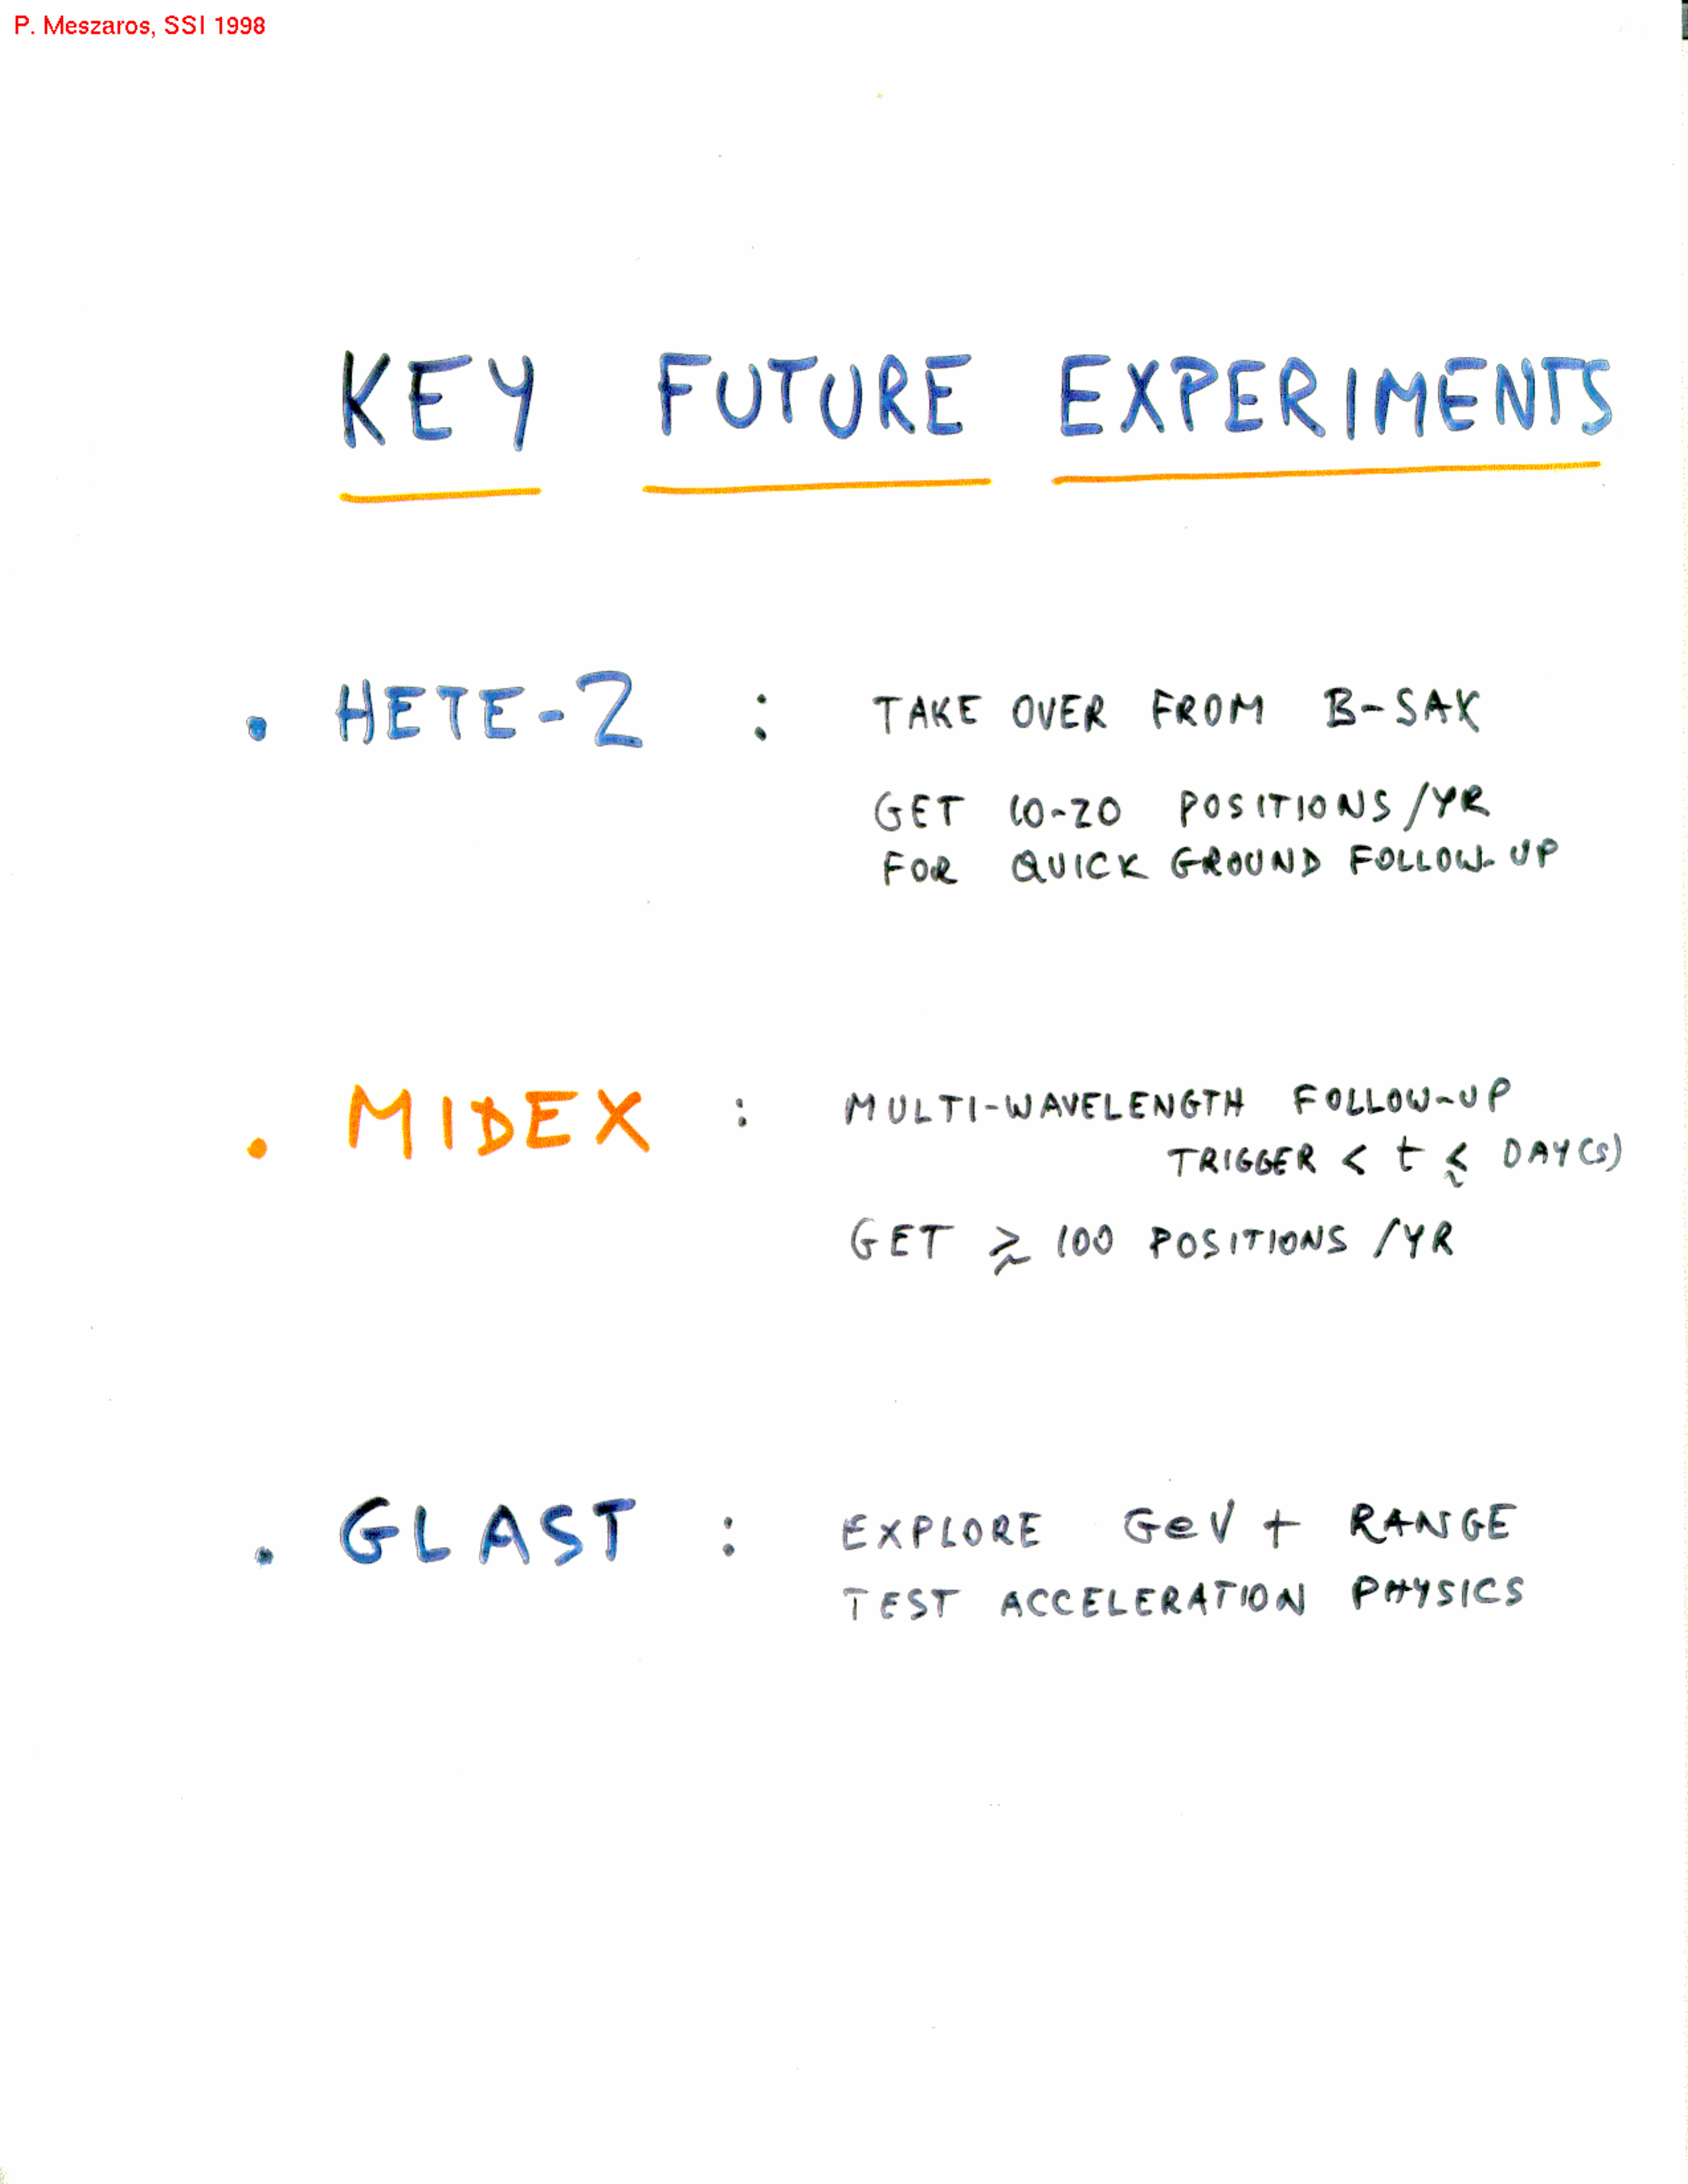 P. Meszaros, SSI 1998
KEY FUTURE EXPERIMENTS
• HETE-2 : TAKE OVER FROM B-SAX
GET 10-20 POSITIONS/YR
FOR QUICK GROUND FOLLOW-UP
• MIDEX : MULTI-WAVELENGTH FOLLOW-UP
TRIGGER < t ≲ DAY(S)
GET ≳ 100 POSITIONS/YR
• GLAST : EXPLORE GeV + RANGE
TEST ACCELERATION PHYSICS